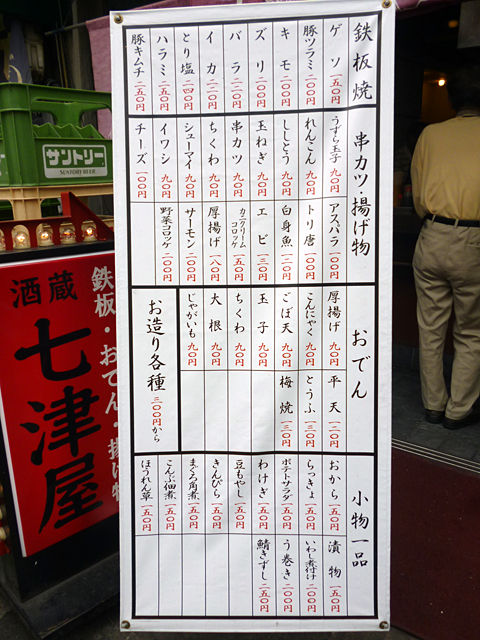 鉄板焼
ゲソ 一五〇円
豚ヅラミ 二〇〇円
キモ 二〇〇円
ズリ 二〇〇円
バラ 二二〇円
イカ 二二〇円
とり塩 二四〇円
ハラミ 二五〇円
豚キムチ 二五〇円
串カツ・揚げ物
うずら玉子 九〇円
れんこん 九〇円
ししとう 九〇円
玉ねぎ 九〇円
串カツ 九〇円
ちくわ 九〇円
シューマイ 九〇円
イワシ 九〇円
チーズ 一〇〇円
アスパラ 一〇〇円
トリ唐 一〇〇円
白身魚 一二〇円
エビ 一三〇円
カニクリームコロッケ 一五〇円
厚揚げ 一八〇円
サーモン 二〇〇円
野菜コロッケ 二〇〇円
おでん
厚揚げ 九〇円
こんにゃく 九〇円
ごぼ天 九〇円
玉子 九〇円
ちくわ 九〇円
大根 九〇円
じゃがいも 九〇円
平天 一二〇円
とうふ 一三〇円
梅焼 一三〇円
お造り各種 三〇〇円から
小物一品
おから 一五〇円
らっきょ 一五〇円
ポテトサラダ 一五〇円
わけぎ 一五〇円
豆もやし 一五〇円
きんぴら 一五〇円
まぐろ角煮 一五〇円
こんぶ佃煮 一五〇円
ほうれん草 一五〇円
漬物 一五〇円
いわし煮付け 二〇〇円
う巻き 二〇〇円
鯖きずし 二五〇円
サントリー
鉄板・おでん・揚げ物
酒蔵
七津屋